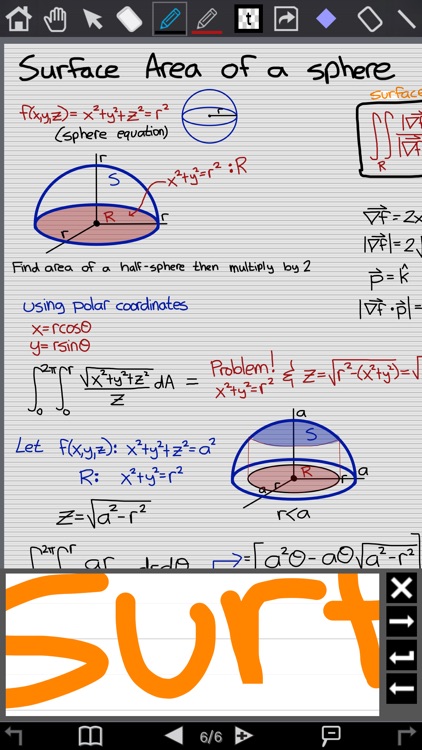 t
Surface Area of a sphere
surface
f(x,y,z)= x²+y²+z²=r²
(sphere equation)
r
∬ |∇f|
R |∇f
r
S
x²+y²=r² : R
R
r
r
∇f = 2x
|∇f| = 2√
p = k̂
|∇f · p| =
Find area of a half-sphere then multiply by 2
Using polar coordinates
x=rcosθ
y=rsinθ
∫₀^2π ∫₀^r √(x²+y²+z²)/z dA =
Problem!
x²+y²=r² & z=√(r²-(x²+y²)) = √
a
S
R
a
r
a
r<a
Let f(x,y,z): x²+y²+z²=a²
R: x²+y²=r²
z=√(a²-r²)
∫∫ 2π r ar drdθ ⇒ =[a²θ-aθ√(a²-r²)
Surf
6/6